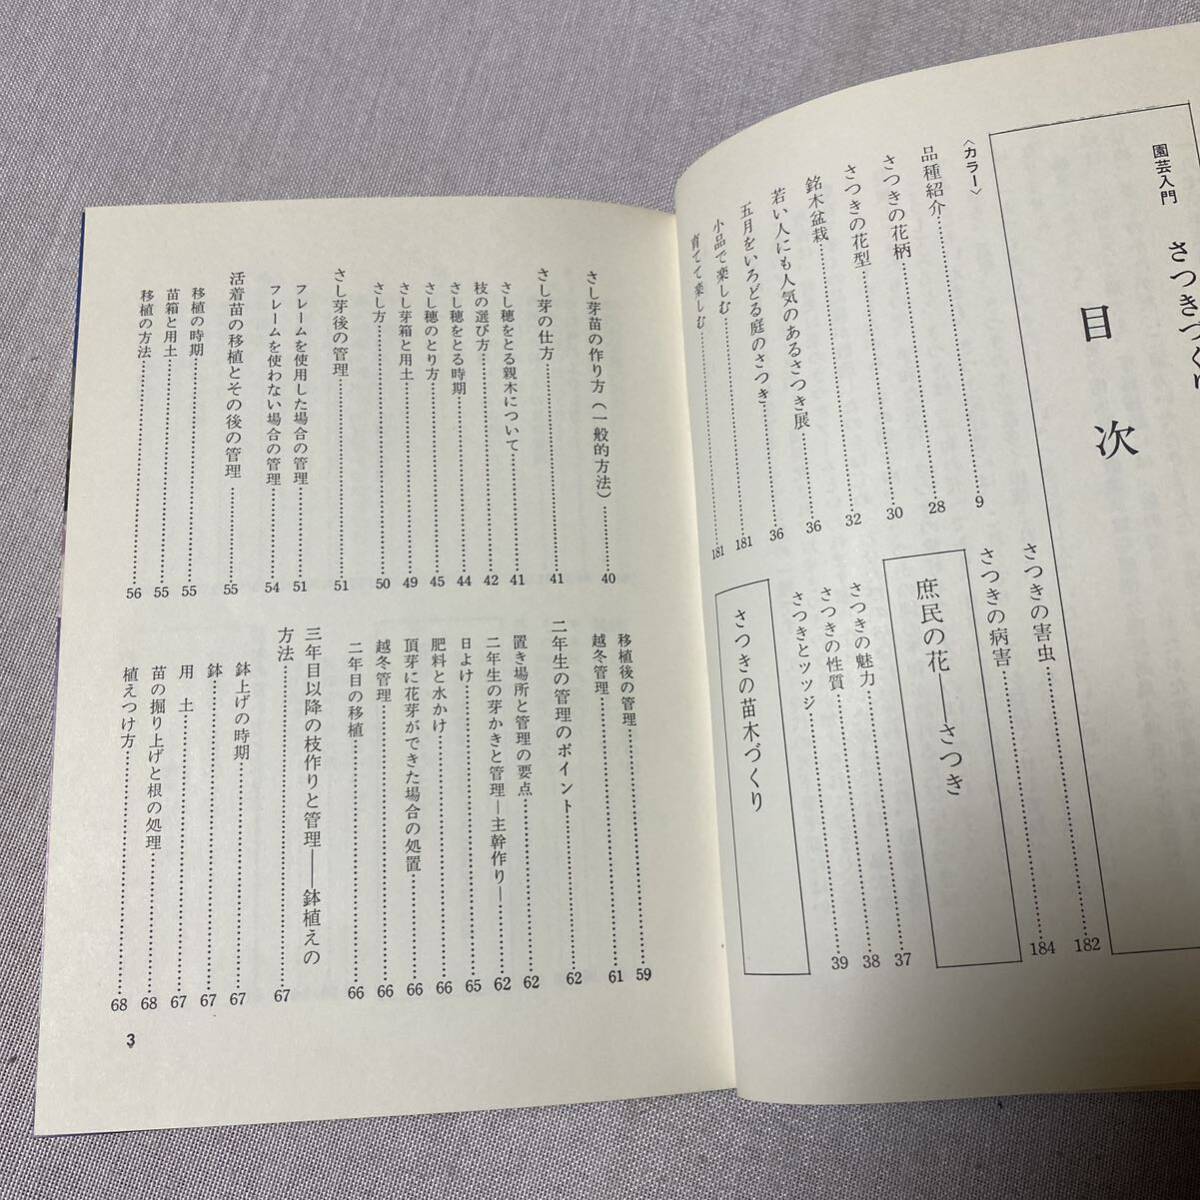 園芸入門 さつきつく
目次
〈カラー〉
品種紹介……9
さつきの花柄……28
さつきの花型……30
銘木盆栽……32
若い人にも人気のあるさつき展……36
五月をいろどる庭のさつき……36
小品で楽しむ……181
育てて楽しむ……181
さつきの害虫……182
さつきの病害……184
庶民の花――さつき
さつきの魅力……37
さつきの性質……38
さつきとツツジ……39
さつきの苗木づくり
さし芽苗の作り方(一般的方法)……40
さし芽の仕方……41
さし穂をとる親木について……41
枝の選び方……42
さし穂をとる時期……44
さし穂のとり方……45
さし芽箱と用土……49
さし方……50
さし芽後の管理……51
フレームを使用した場合の管理……51
フレームを使わない場合の管理……54
活着苗の移植とその後の管理……55
移植の時期……55
苗箱と用土……55
移植の方法……56
移植後の管理……59
越冬管理……61
二年生の管理のポイント……62
置き場所と管理の要点……62
二年生の芽かきと管理―主幹作り―……62
日よけ……65
肥料と水かけ……66
頂芽に花芽ができた場合の処置……66
越冬管理……66
二年目の移植……66
三年目以降の枝作りと管理――鉢植えの
方法……67
鉢上げの時期……67
鉢……67
用土……67
苗の掘り上げと根の処理……68
植えつけ方……68
3